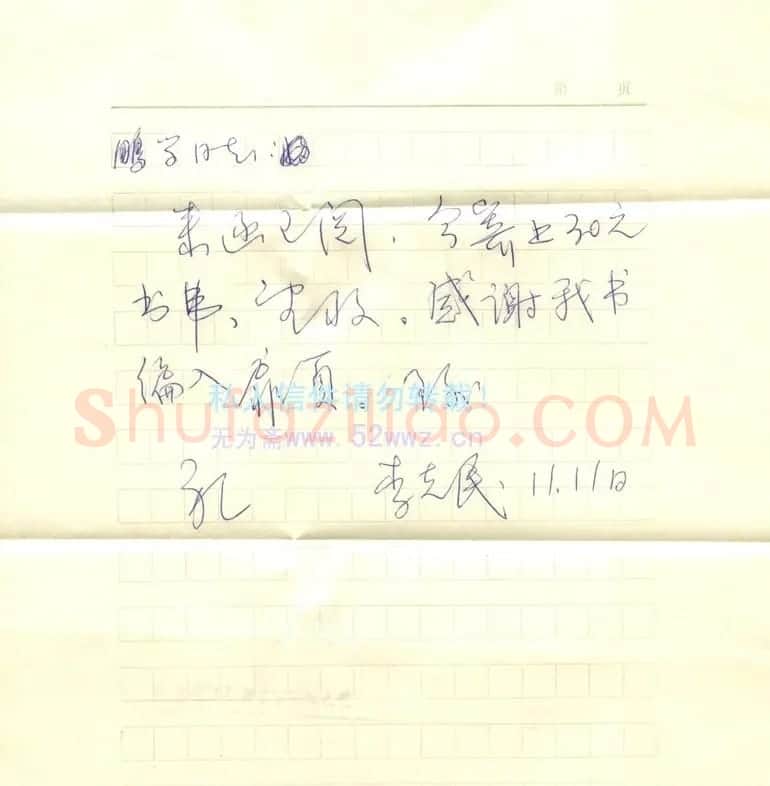 第 页
鹏学同志：
来函已阅，今寄上30元
书串，望收。感谢我书
编入扉页。
私人信件请勿转载!
Shufaziliao.COM
无为斋www.52wwz.cn
礼 李克民 11.11日